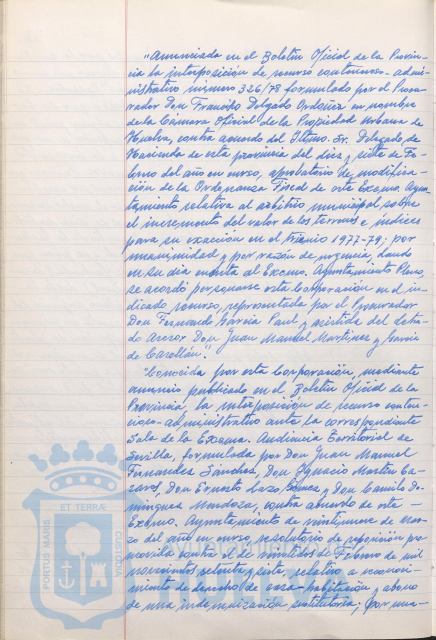 "Anunciada en el Boletín Oficial de la Provin-
cia la interposición de recurso contencioso-admi-
nistrativo número 326/78 formulado por el Procu-
rador Don Francisco Delgado Ordoñez en nombre
de la Cámara Oficial de la Propiedad Urbana de
Huelva, contra acuerdo del Iltmo. Sr. Delegado de
Hacienda de esta provincia del diez y siete de Fe-
brero del año en curso, aprobatorio de modifica-
ción de la Ordenanza Fiscal de este Excmo. Ayun-
tamiento relativa al arbitrio municipal sobre
el incremento del valor de los terrenos e índices
para su exacción en el trienio 1977-79; por
unanimidad y por razón de urgencia, dando
en su día cuenta al Excmo. Ayuntamiento Pleno,
se acordó personarse esta Corporación en el in-
dicado recurso, representada por el Procurador
Don Fernando García Paul y asistida del Letra-
do Asesor Don Juan Manuel Martínez y García
de Casellán".
"Conocida por esta Corporación, mediante
anuncio publicado en el Boletín Oficial de la
Provincia la interposición de recurso conten-
cioso-administrativo ante la correspondiente
Sala de la Excma. Audiencia Territorial de
Sevilla, formulada por Don Juan Manuel
Fernandez Sánchez, Don Ygnacio Martín Ca-
zares, Don Ernesto Lazo y Don Camilo Do-
minguez Mendoza, contra acuerdo de este
Excmo. Ayuntamiento de veintinueve de Mar-
zo del año en curso, resolutorio de reposición pro-
movida contra el de veintidos de Febrero de mil
novecientos setenta y siete, relativo a reconoci-
miento de derecho de casa-habitación y abono
de una indemnización sustitutoria; por una-
PORTUS MARIS ET TERRÆ CUSTODIA